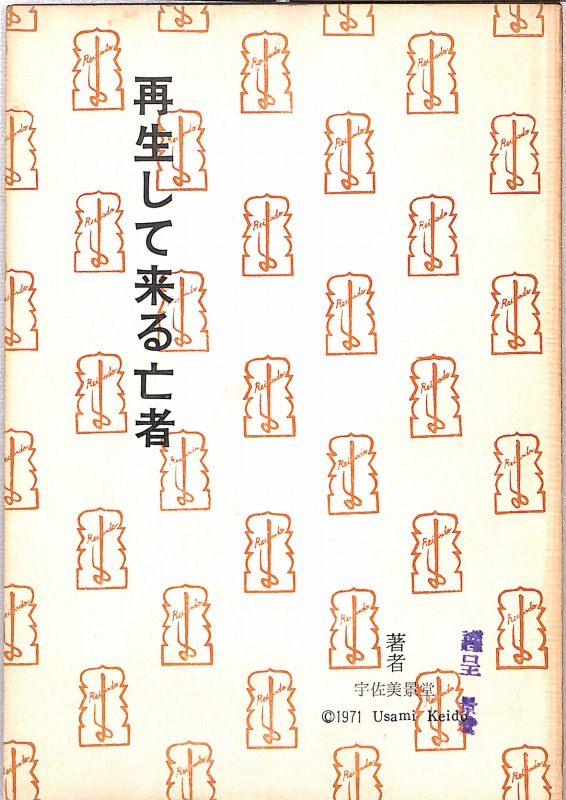 再生して来る亡者
著者
宇佐美景堂
©1971 Usami Keido
謹呈